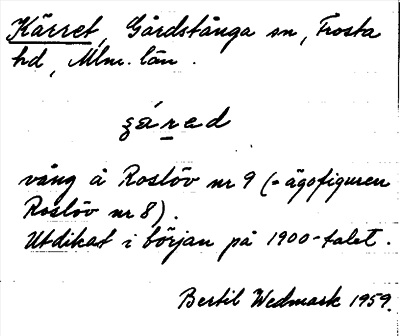 Kärret, Gårdstånga sn, Frosta
hd, Mlm. län.
vång å Roslöv nr 9 (= ägofiguren
Roslöv nr 8).
Utdikat i början på 1900-talet.
Bertil Wedmark 1959.